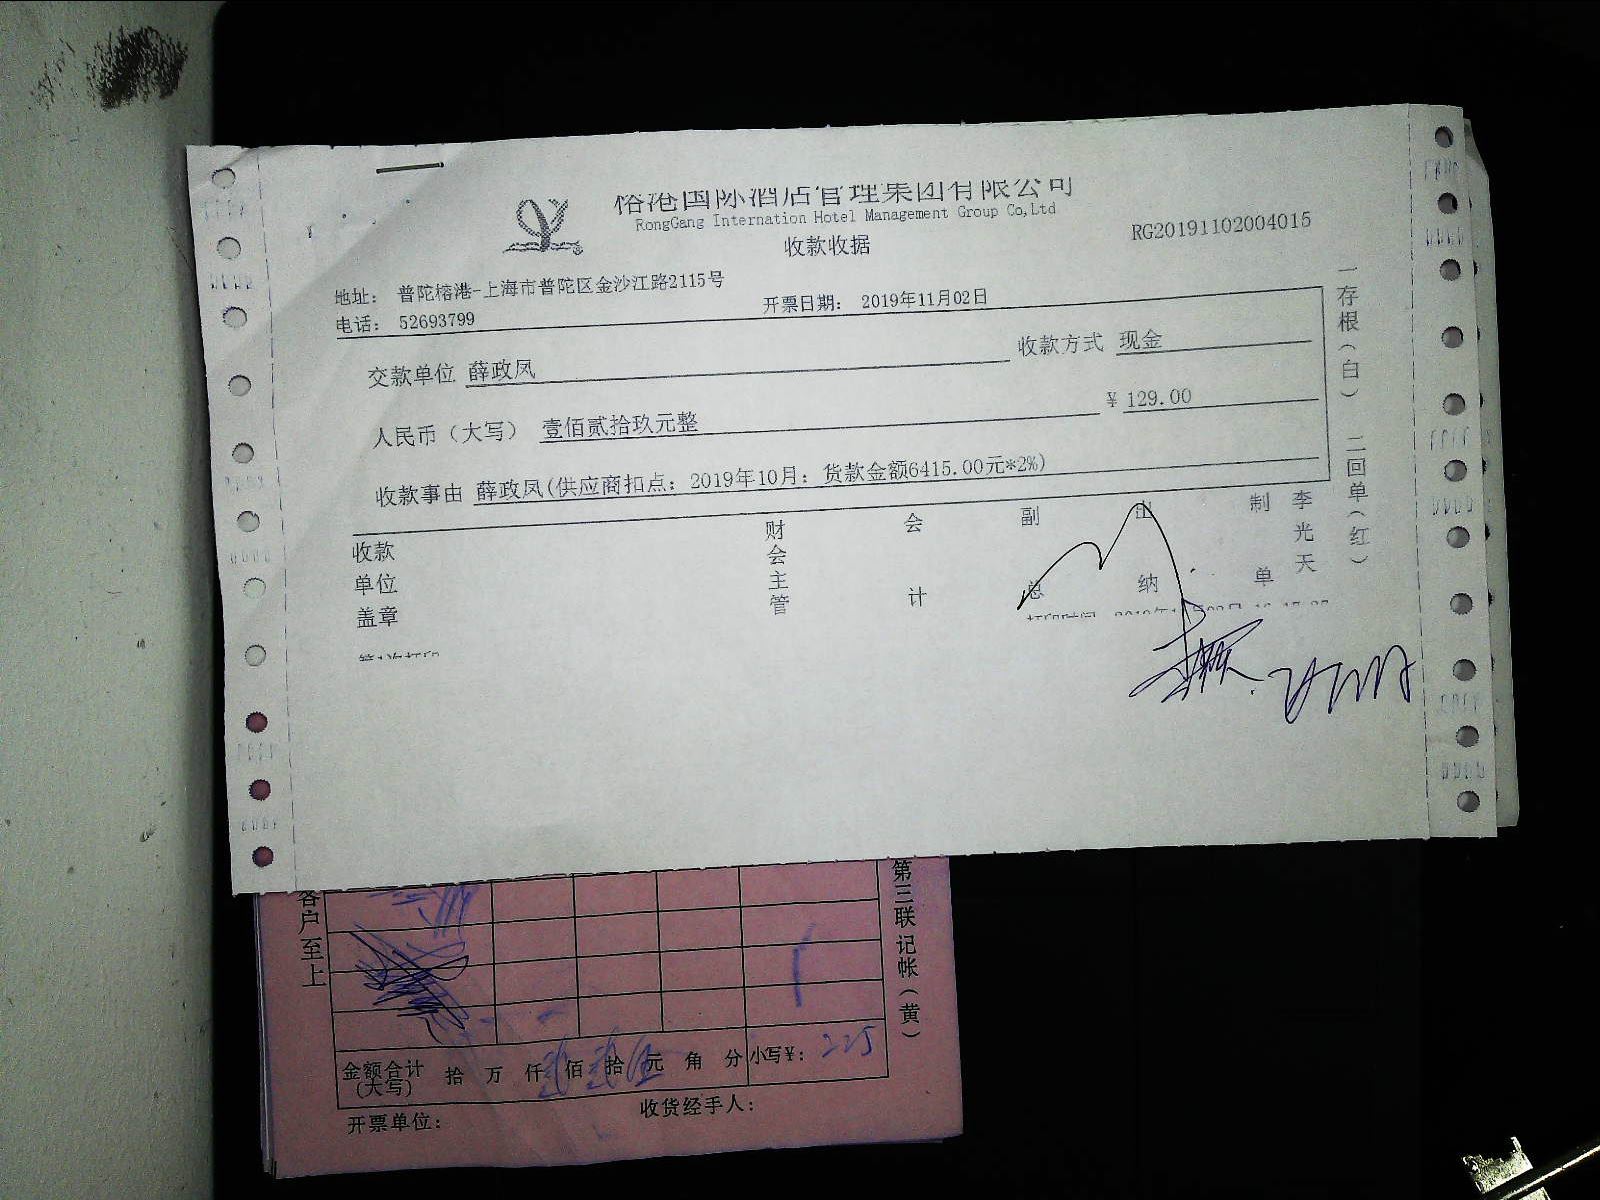 榕港国际酒店管理集团有限公司
RongGang Internation Hotel Management Group Co,Ltd
收款收据
RG20191102004015
地址： 普陀榕港-上海市普陀区金沙江路2115号
电话： 52693799
开票日期： 2019年11月02日
交款单位 薛政凤
收款方式 现金
人民币（大写） 壹佰贰拾玖元整
¥ 129.00
收款事由 薛政凤(供应商扣点：2019年10月：货款金额6415.00元*2%)
收款单位盖章
财会主管
会计
副总
出纳
制单
李光天
一存根（白） 二回单（红）
第1次打印
客户至上
第三联记帐（黄）
金额合计（大写） 拾 万 仟 贰 佰 贰 拾 伍 元 角 分 小写¥： 225
开票单位：
收货经手人：